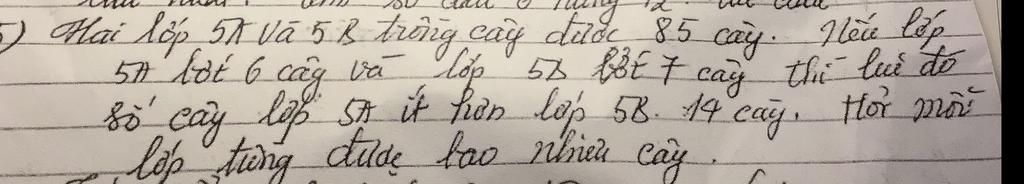 5) Hai lớp 5A và 5B trồng cây được 85 cây. Nếu lớp
5A bớt 6 cây và lớp 5B bớt 7 cây thì lúc đó
số cây lớp 5A ít hơn lớp 5B. 14 cây. Hỏi mỗi
lớp trồng được bao nhiêu cây.